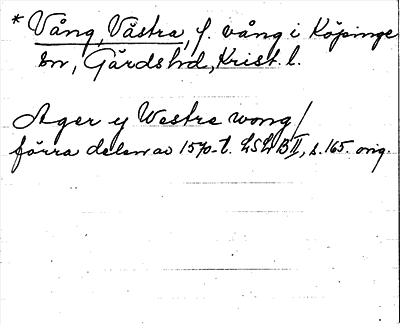 * Vång, Västra, f. vång i Köpinge
sn, Gärds hd, Krist. l.
Ager y Westre wong/
förra delen av 1570-t. LSLB II, s. 165. orig.